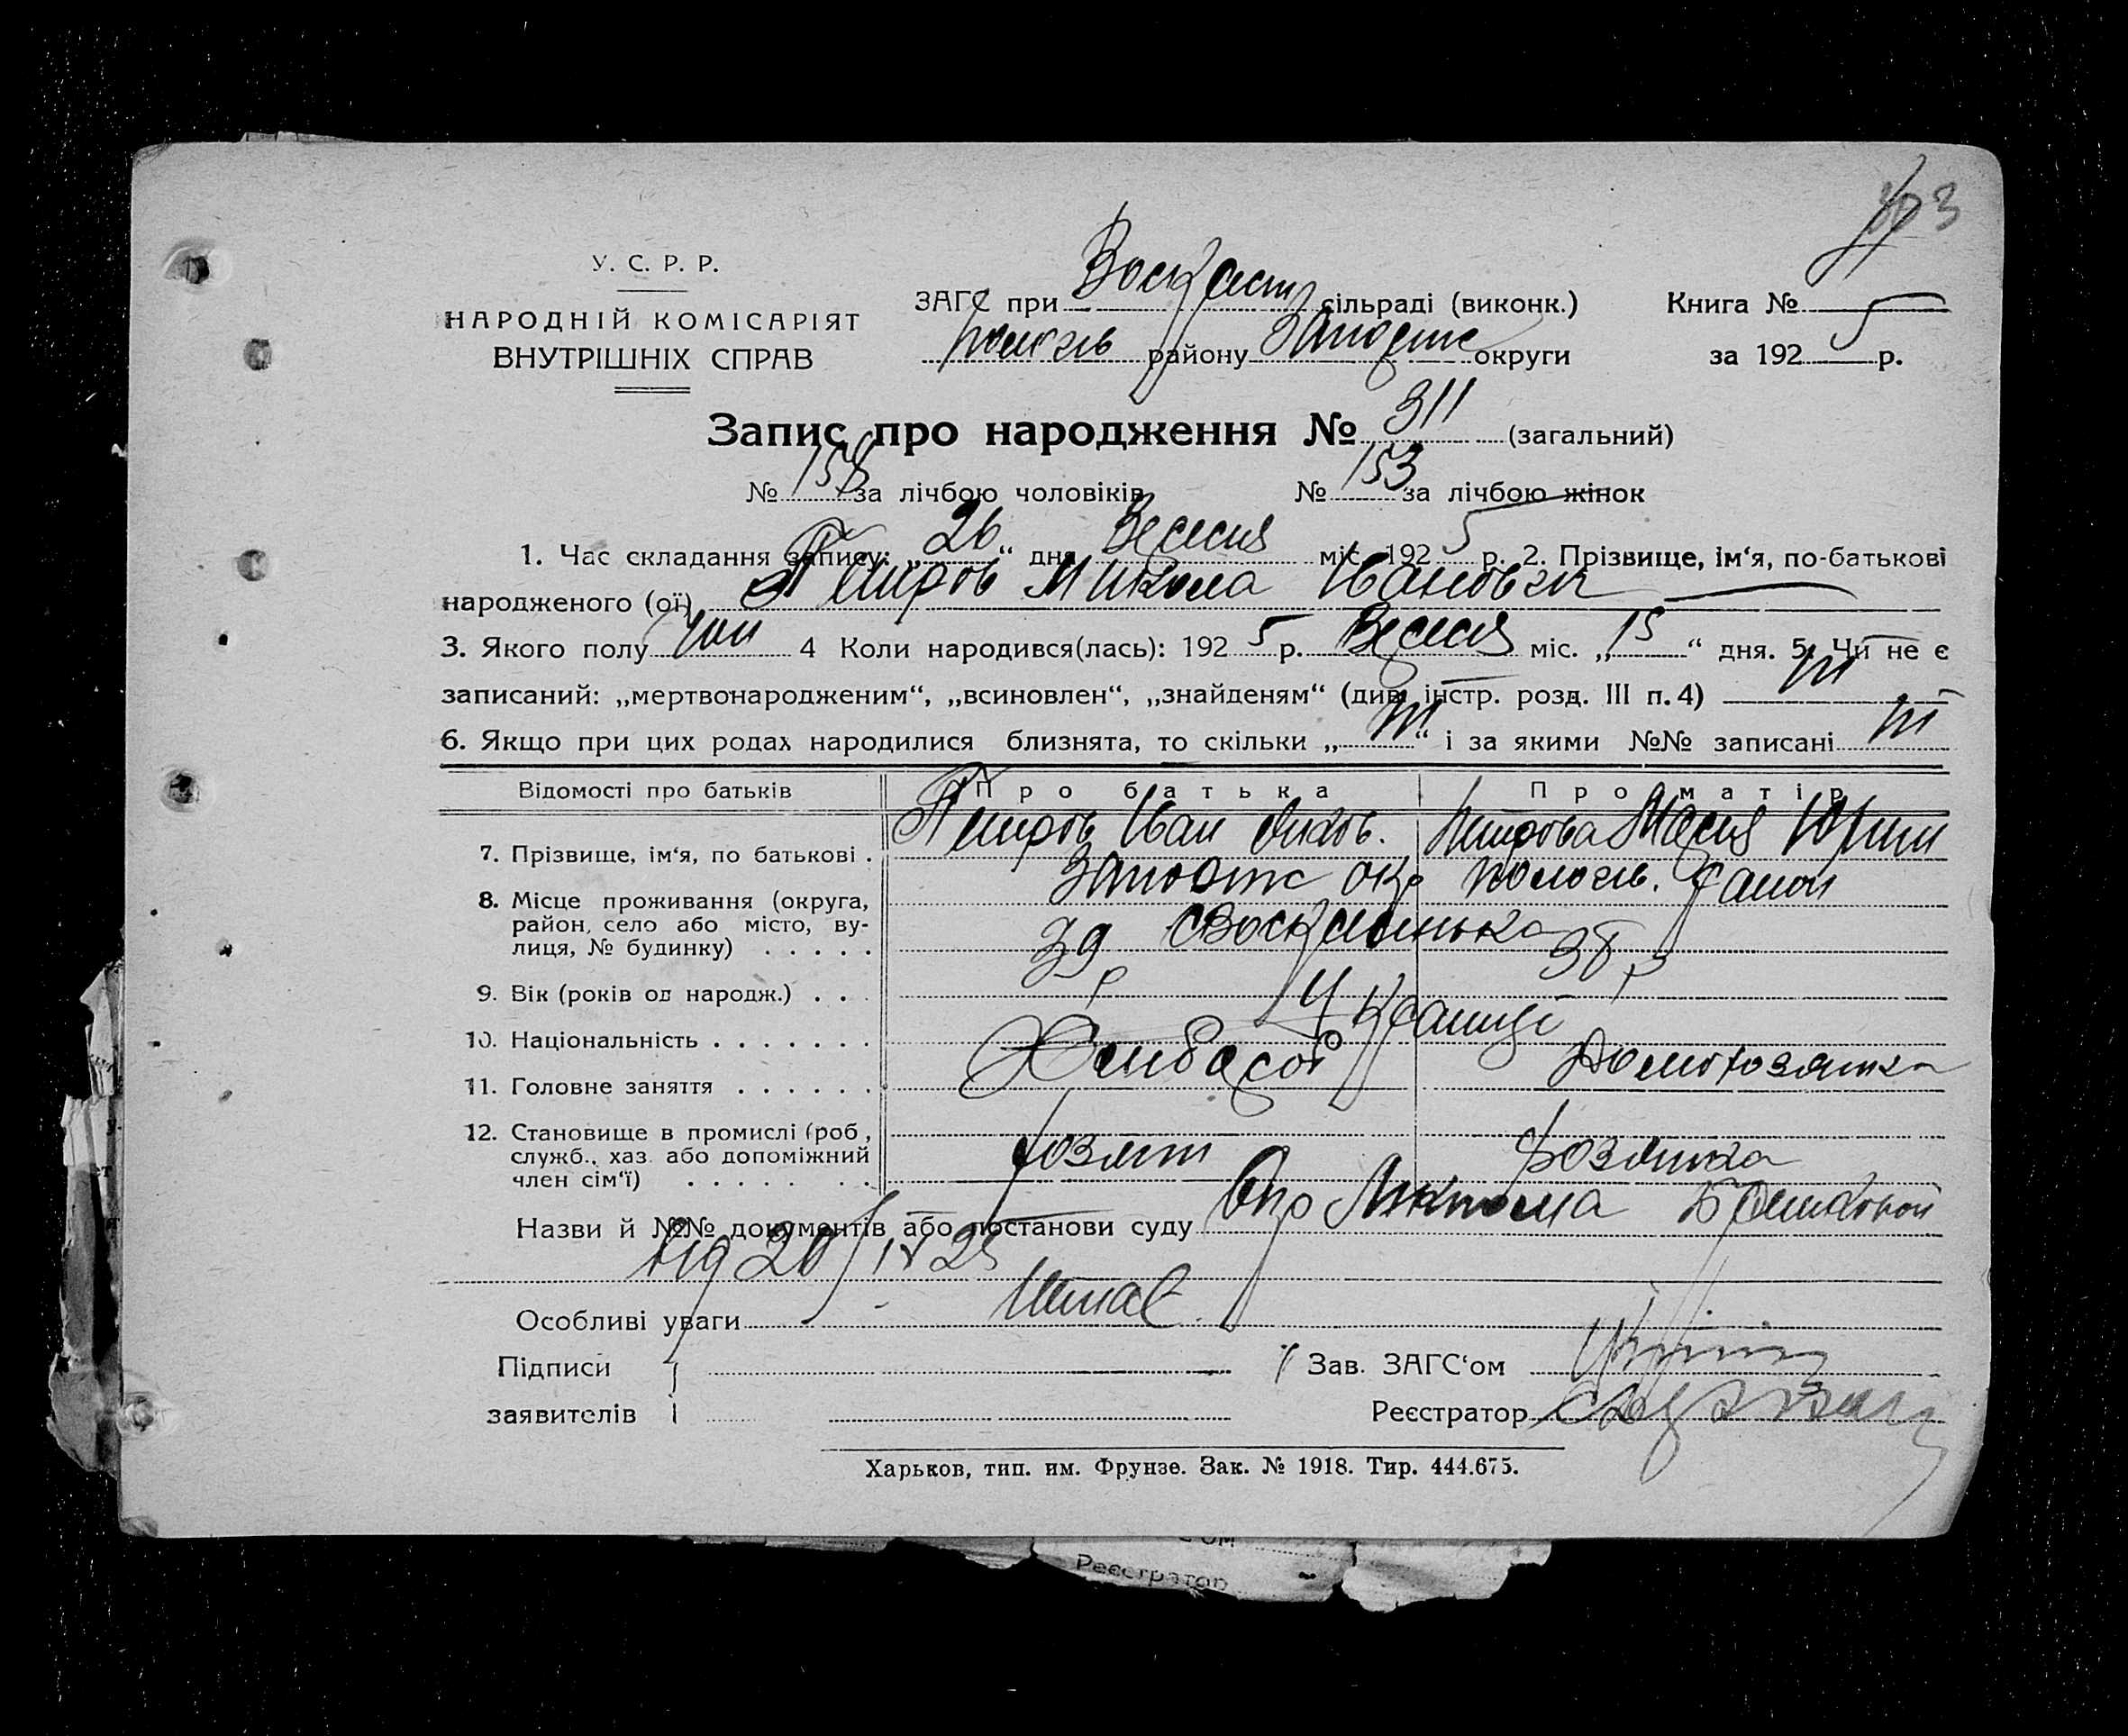 У. С. Р. Р.
НАРОДНІЙ КОМІСАРІЯТ
ВНУТРІШНІХ СПРАВ
ЗАГС при Воскресен сільраді (виконк.)
Пологів району Запоріж округи
Книга №
за 1925 р.
Запис про народження № 311 (загальний)
№ 158 за лічбою чоловіків № 153 за лічбою жінок
1. Час складання запису: „26“ дня Вересня міс. 1925 р. 2. Прізвище, ім‘я, по-батькові
народженого (ої) Петров Микола Іванович
3. Якого полу чол 4 Коли народився(лась): 1925 р. Вересня міс. „15“ дня. 5. Чи не є
записаний: „мертвонародженим“, „всиновлен“, „знайденям“ (див. інстр. розд. III п. 4) ні
6. Якщо при цих родах народилися близнята, то скільки „ні“ і за якими №№ записані ні
Відомості про батьків Про батька Про матір
7. Прізвище, ім‘я, по батькові . Петров Іван Яков. Петрова Марія
8. Місце проживання (округа,
район, село або місто, ву-
лиця, № будинку) . . . . .
Запоріж окр Пологів. район
Воскресенька
9. Вік (років од народж.) . . . 39 р 38 р
10. Національність . . . . . . . Українці
11. Головне заняття . . . . . . Хлібороб Домохозяйка
12. Становище в промислі (роб.,
служб., хаз. або допоміжний
член сім‘ї) . . . . . . . хозяїн хозяйка
Назви й №№ документів або постанови суду
від 20/IX 25
Особливі уваги Немає
Підписи
заявителів
Зав. ЗАГС‘ом
Реєстратор
Харьков, тип. им. Фрунзе. Зак. № 1918. Тир. 444.675.
Реєстратор